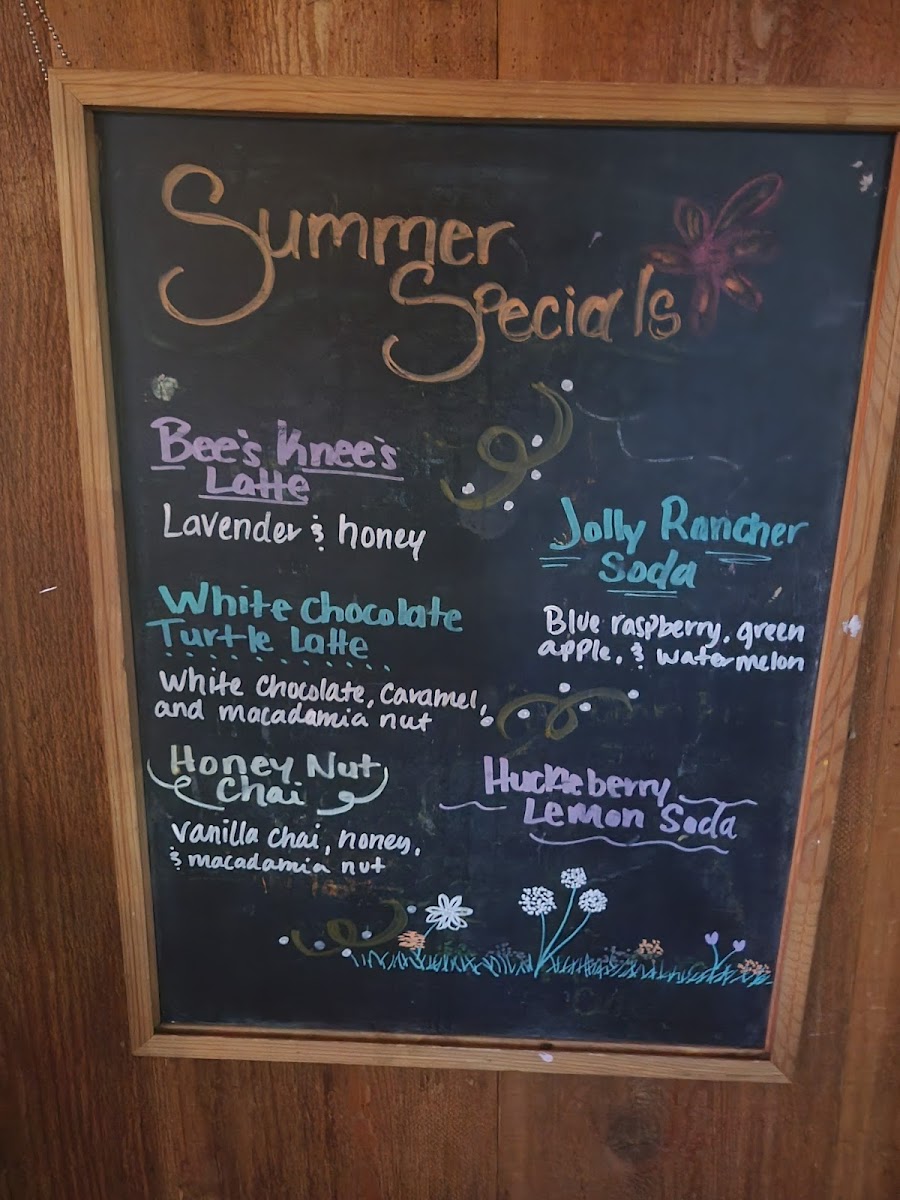 Summer
Specials
Bee's Knee's
Latte
Lavender & honey
White Chocolate
Turtle Latte
White Chocolate, Caramel,
and macadamia nut
Honey Nut
Chai
Vanilla chai, honey,
& macadamia nut
Jolly Rancher
Soda
Blue raspberry, green
apple, & watermelon
Huckleberry
Lemon Soda